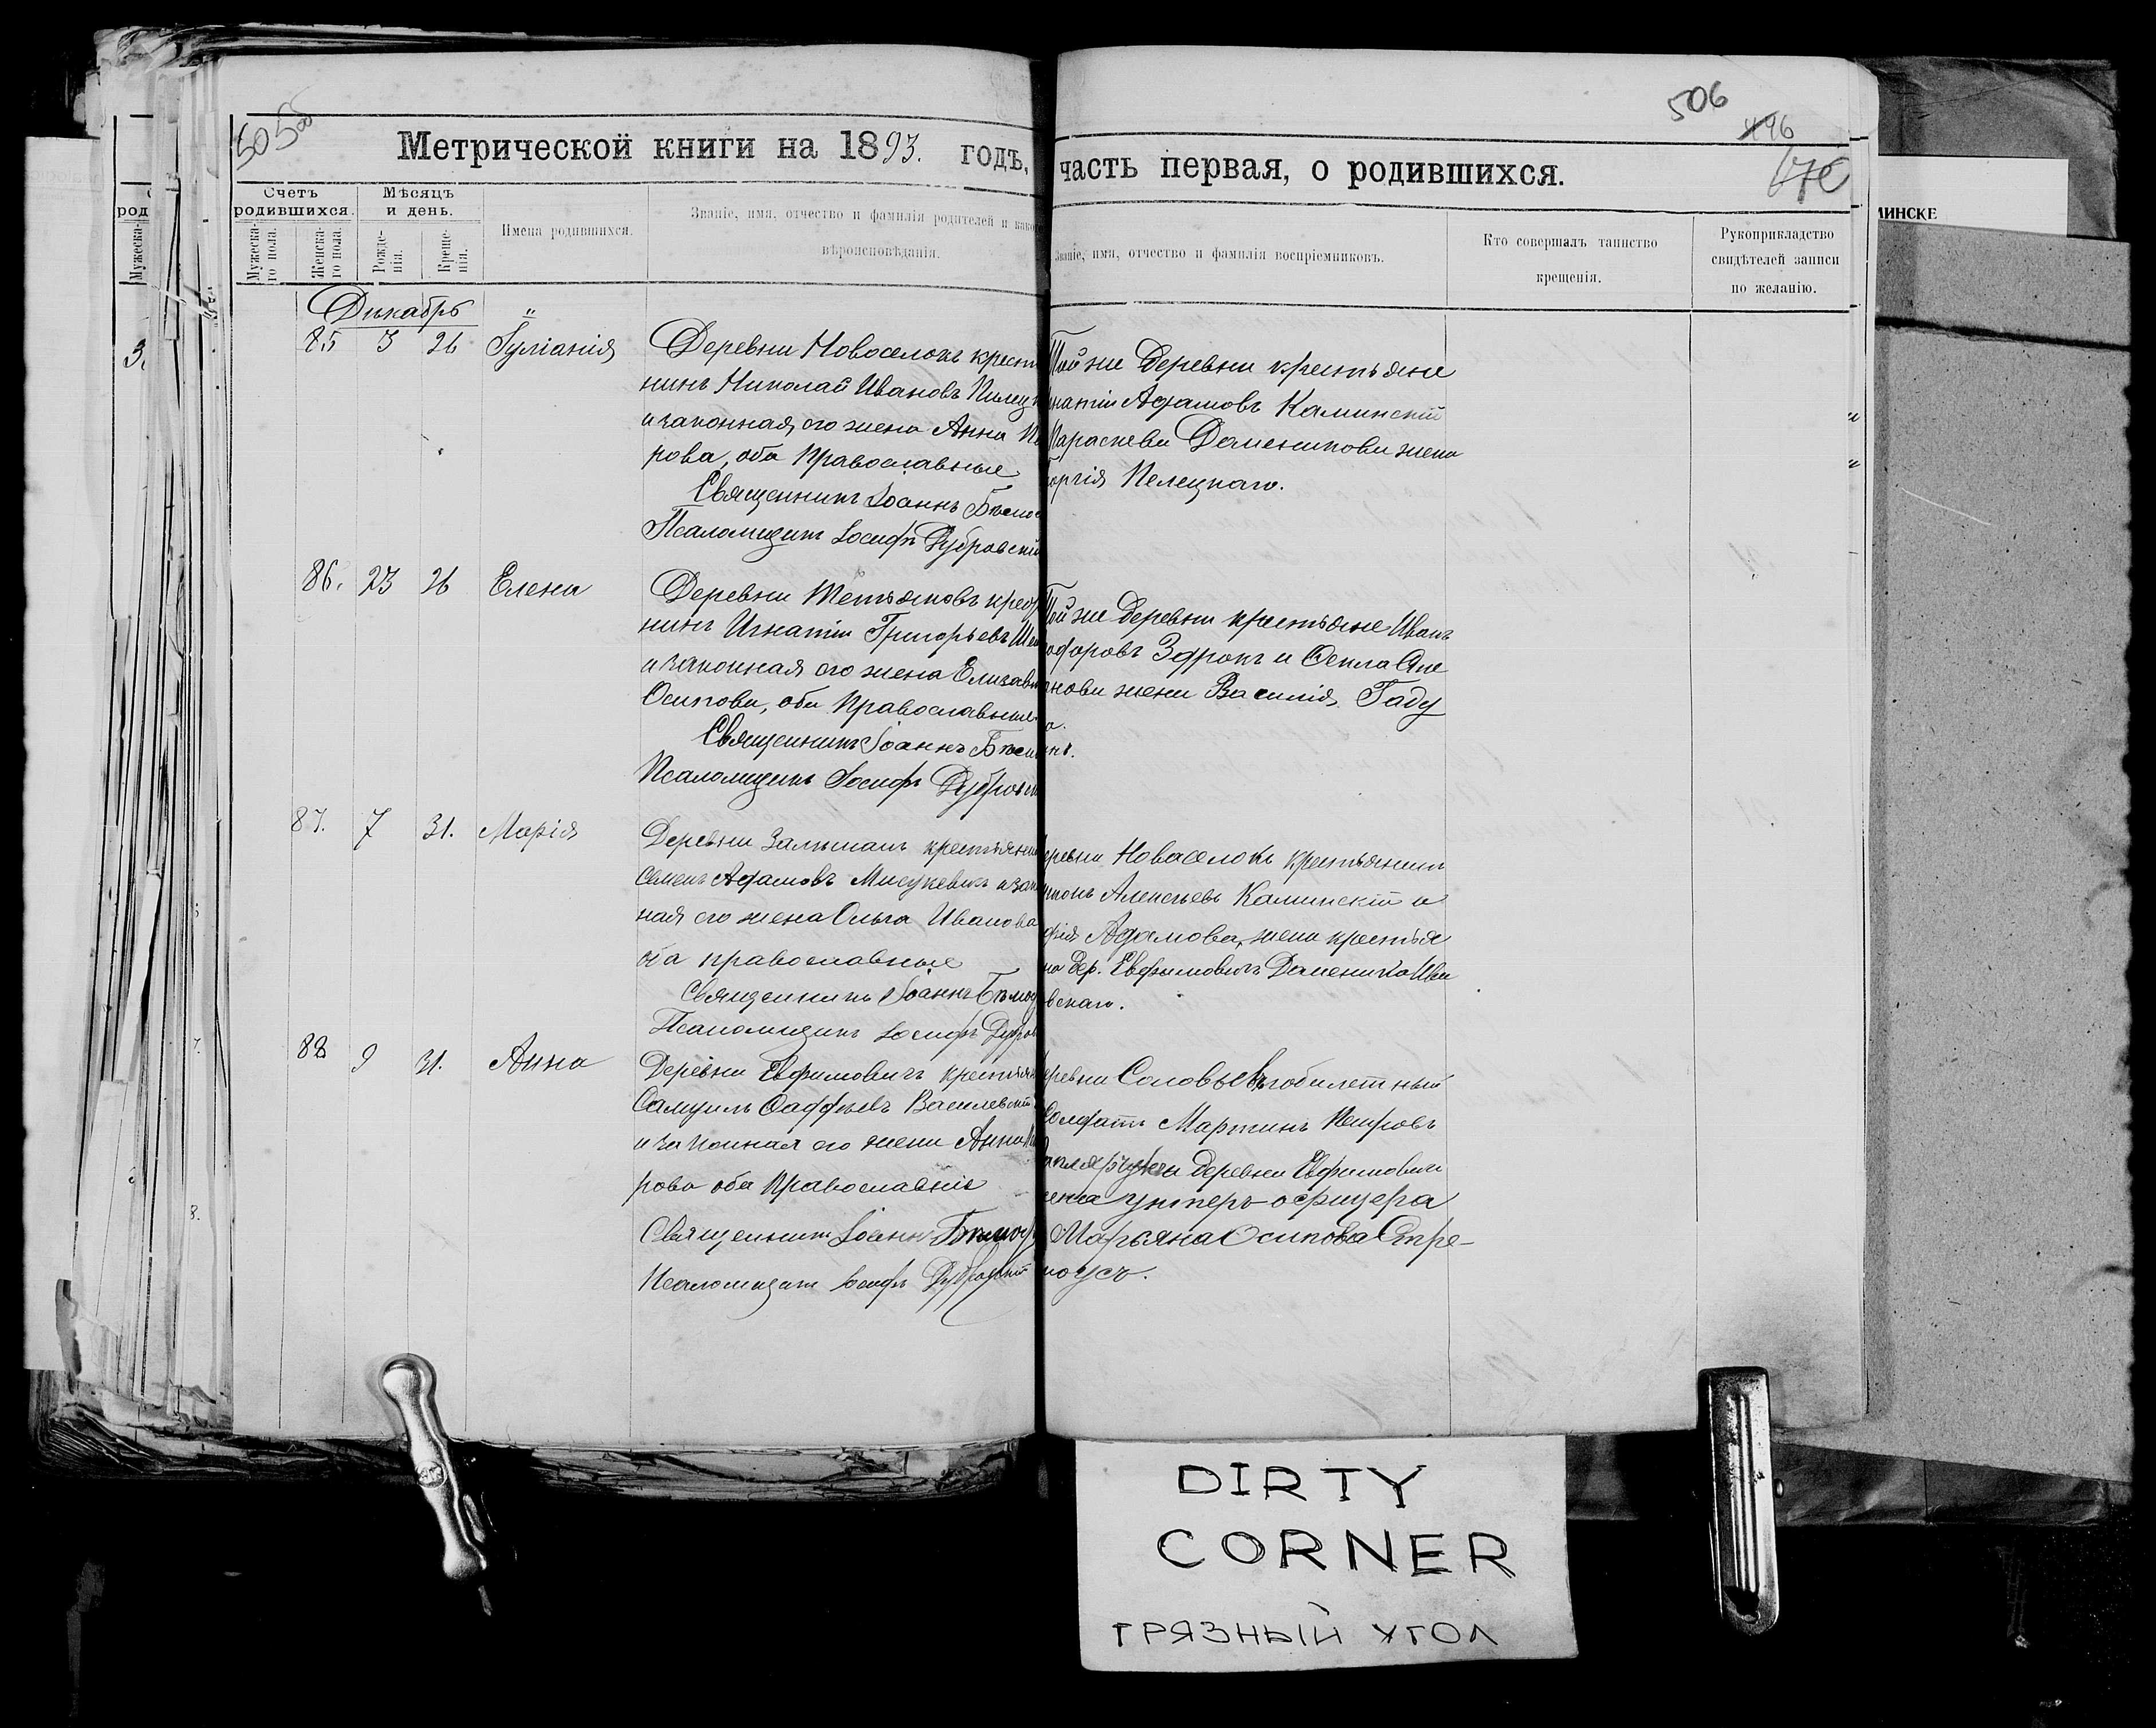 505
506
496
Метрической книги на 1893. годъ,
часть первая, о родившихся.
МИНСКЕ
Счетъ родившихся.
Мѣсяцъ и день.
Мужеска-го пола.
Женска-го пола.
Рожде-нія.
Креще-нія.
Имена родившихся.
Званіе, имя, отчество и фамилія родителей и како
вѣроисповѣданія.
Званіе, имя, отчество и фамилія воспріемниковъ.
Кто совершалъ таинство
крещенія.
Рукоприкладство
свидѣтелей записи
по желанію.
Декабрь
85 3 26 Іуліанія
Деревни Новоселокъ крест
нинъ Николай Ивановъ Пилец
и законная его жена Анна Пе
рова, оба православные
Священникъ Іоаннъ
Псаломщикъ Іосифъ Дубровскій
Той же деревни крестьяне
натій Адамовъ Каминскій
Параскева Доменикова жена
оргія Пелецкаго.
86. 23 26 Елена
Деревни крест
нинъ Игнатій Григорьевъ
и законная его жена Елизаве
Осипова, оба православные.
Священникъ Іоаннъ
Псаломщикъ Іосифъ Дубровск
Той же деревни крестьяне Иванъ
офоровъ Здрокъ и
нова жена Василія Гаду
а.
87. 7 31. Марія
Деревни крестьянин
Семенъ Адамовъ Мисукевичъ и закон
ная его жена Ольга Иванова
оба православные
Священникъ Іоаннъ
Псаломщикъ Іосифъ Дубров
еревни Новоселокъ крестьянинъ
Алексѣевъ Каминскій и
фія Адамова, жена крестья
на дер. Евфимовичъ Доменика Ива
вскаго.
88 9 31. Анна
Деревни Евфимовичъ крестьян
Самуилъ Василевскій
и законная его жена Анна
рова оба православніе
Священникъ Іоаннъ
Псаломщикъ Іосифъ Дубровскій
еревни билетный
Солдатъ Мартинъ Петровъ
деревни Евфимовичи
ена унтеръ-офицера
Марьяна Осипова Стре-
ноусъ.
DIRTY
CORNER
ГРЯЗНЫЙ УГОЛ